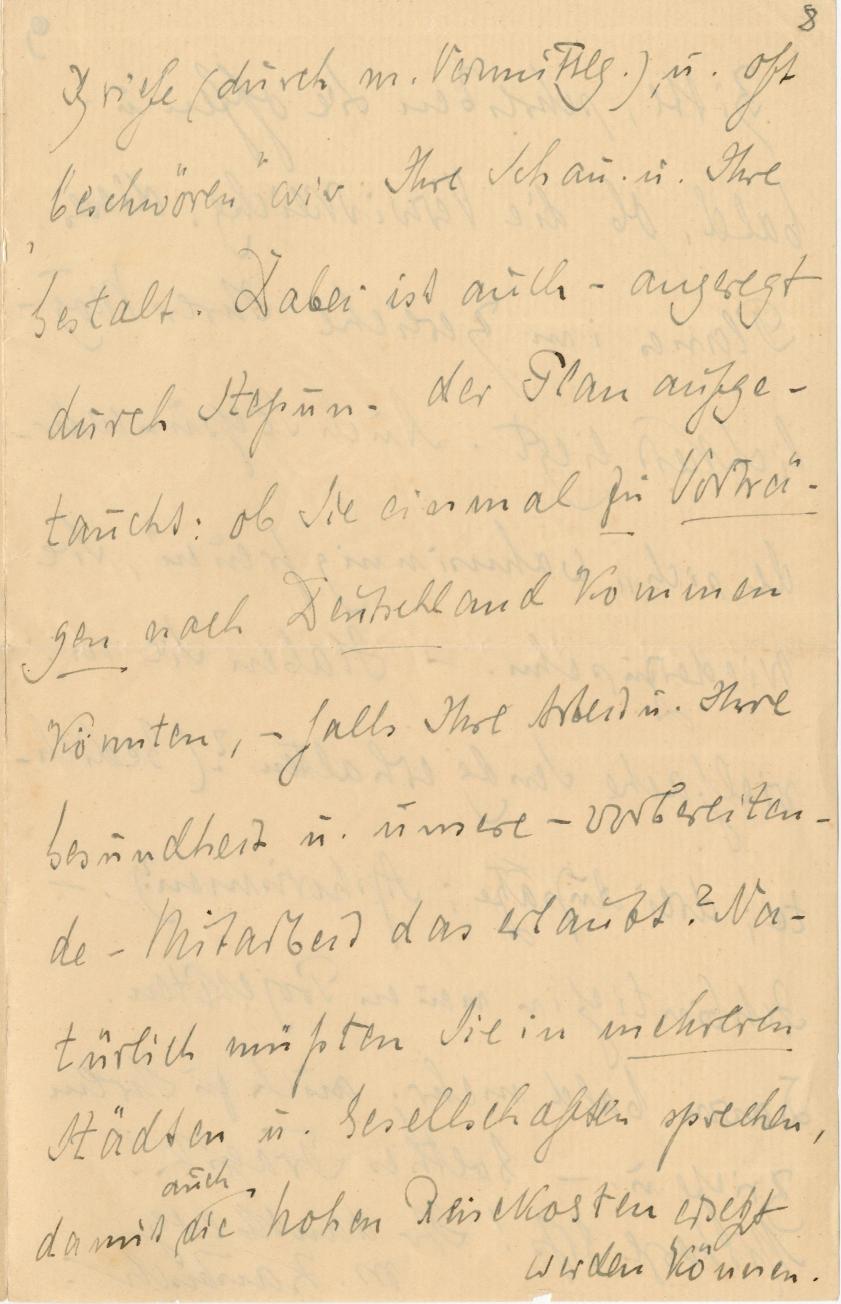 8
Briefe (durch m. Vermittlg.), u. oft
„beschwören" wir Ihre Schau u. Ihre
Gestalt. Dabei ist auch – angeregt
durch Stepun – der Plan aufge-
taucht: ob Sie einmal zu Vorträ-
gen nach Deutschland kommen
könnten, – falls Ihre Arbeit u. Ihre
Gesundheit u. unsere – vorbereiten-
de – Mitarbeit das erlaubt? Na-
türlich müßten Sie in mehreren
Städten u. Gesellschaften sprechen,
auch
damit die hohen Reisekosten ersetzt
werden können.